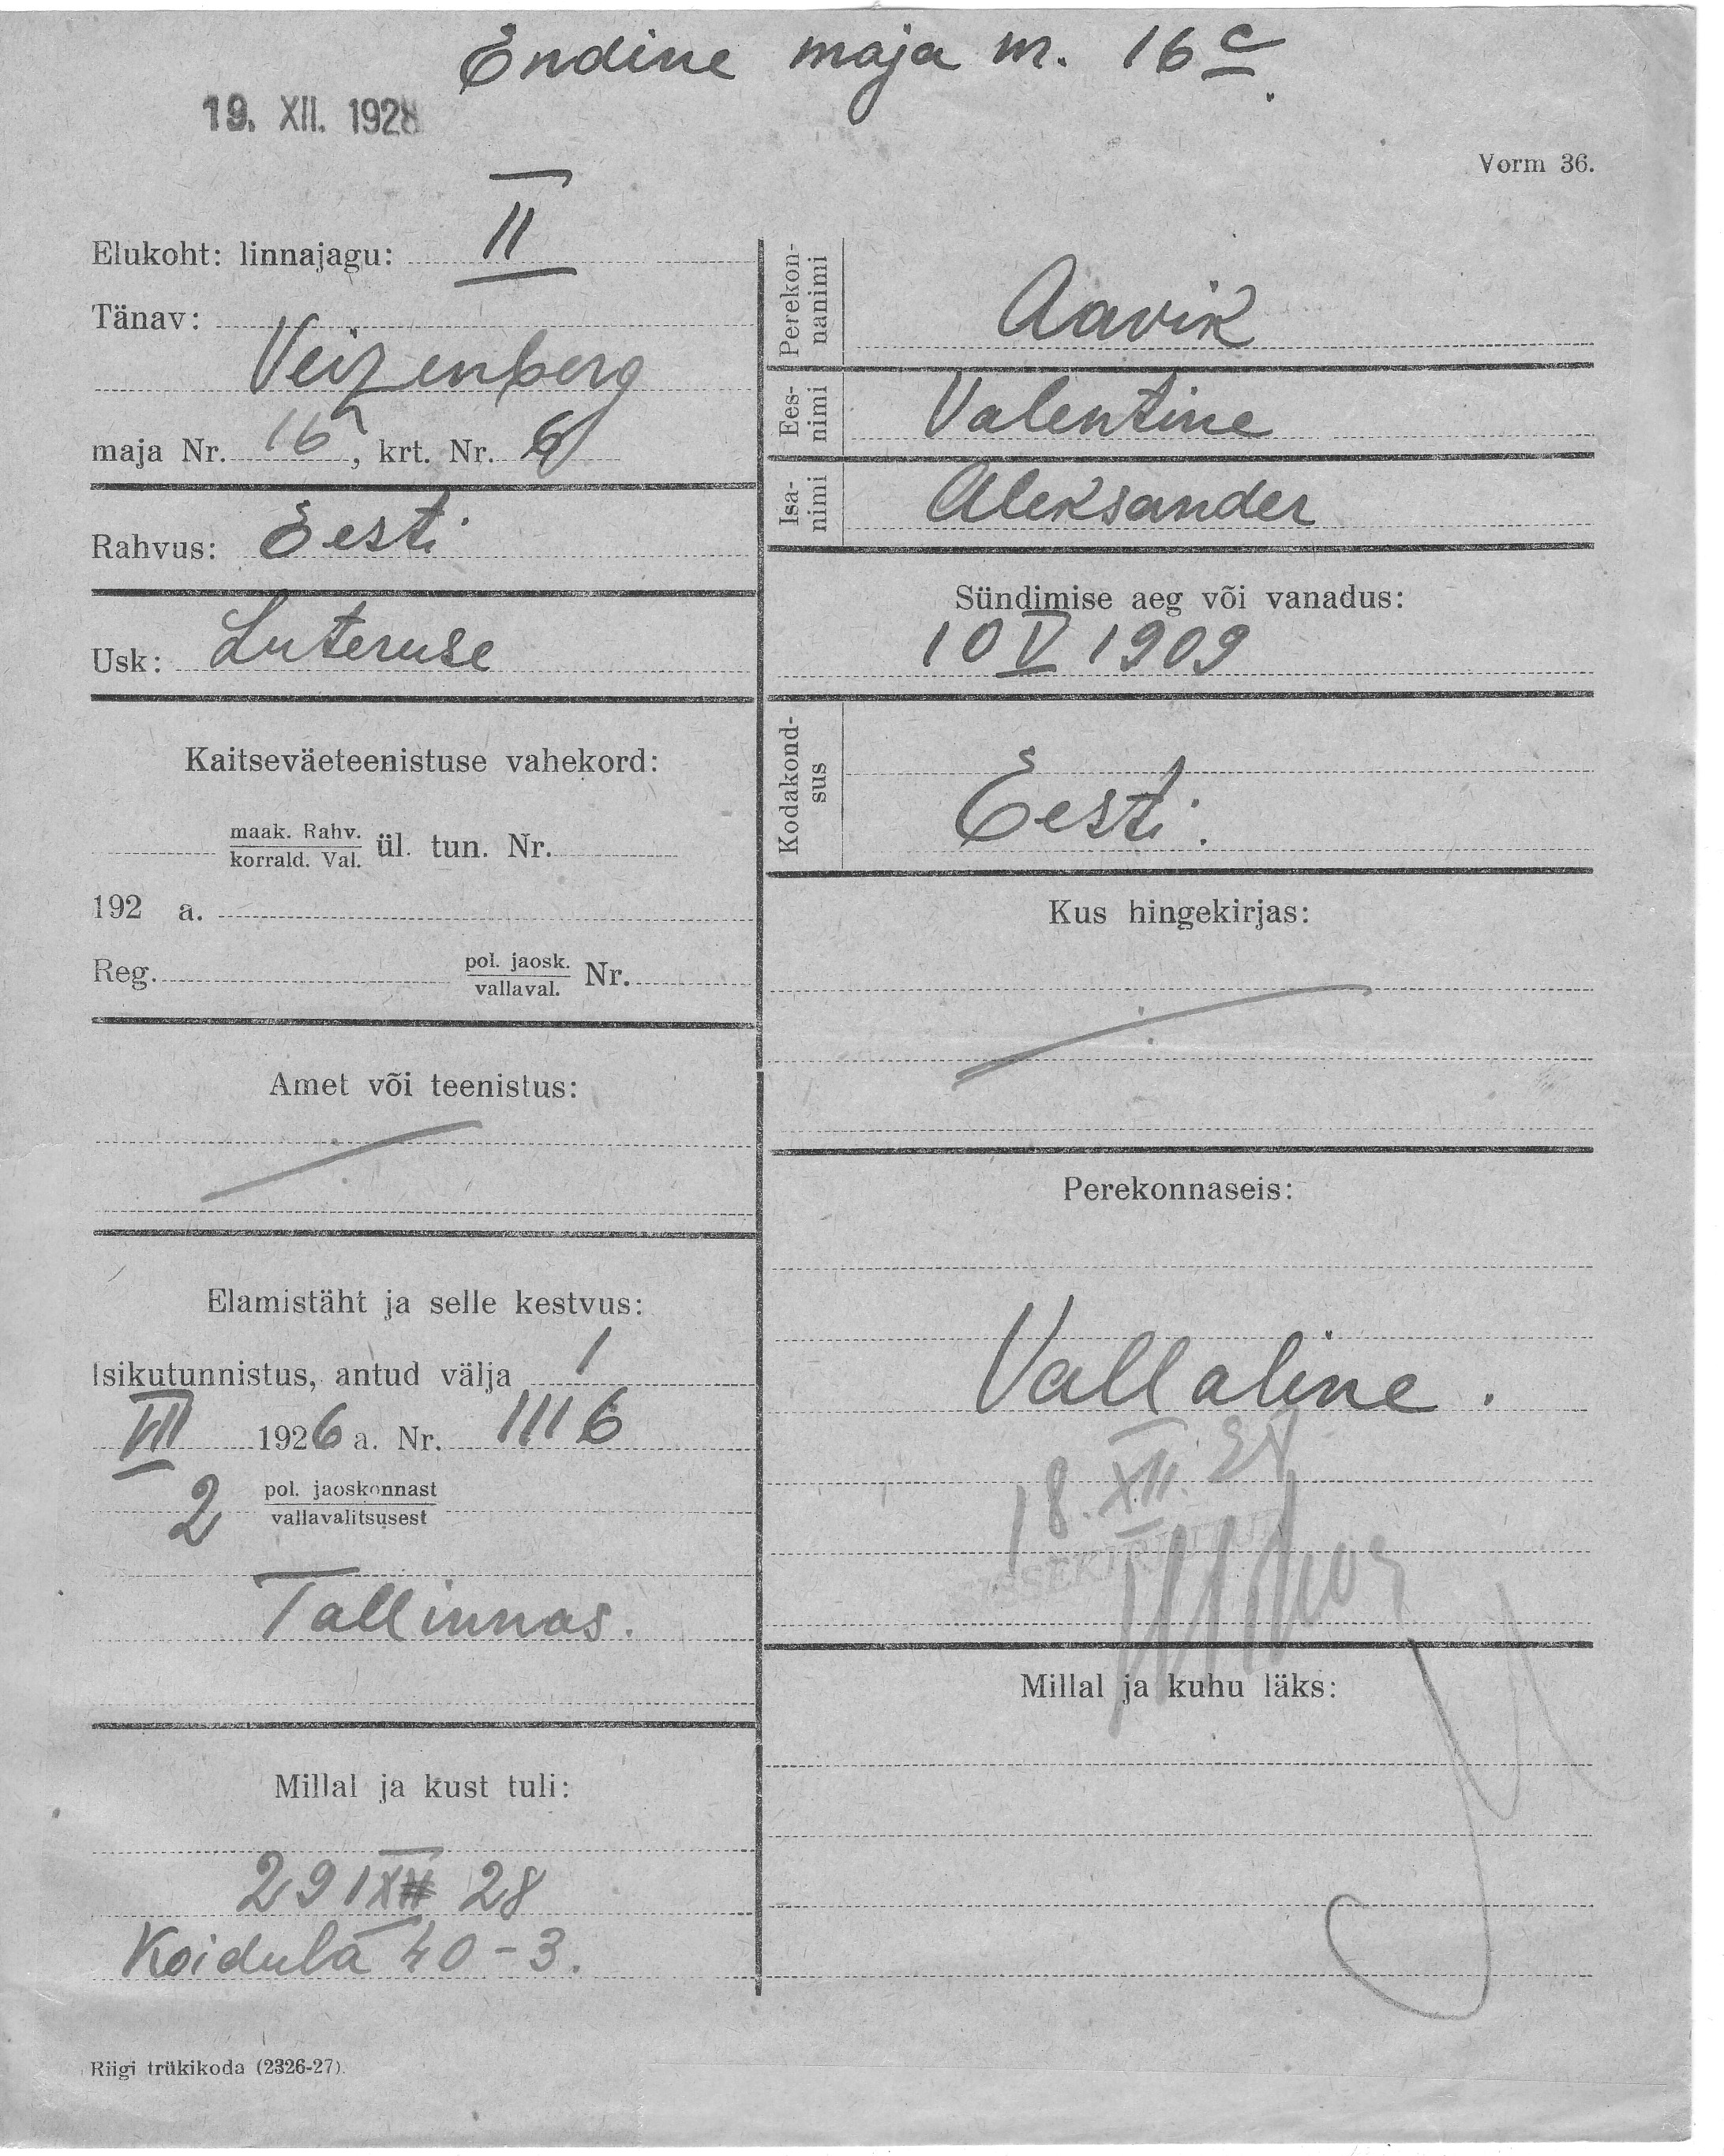 Endine maja nr. 16 c.
19. XII. 1928
Vorm 36.
Elukoht: linnajagu: II
Tänav:
Veizenberg
maja Nr. 16, krt. Nr. 6
Rahvus: Eesti
Usk: Luteruse
Kaitseväeteenistuse vahekord:
maak. Rahv.
korrald. Val. ül. tun. Nr.
192 a.
Reg. pol. jaosk.
vallaval. Nr.
Amet või teenistus:
Elamistäht ja selle kestvus:
Isikutunnistus, antud välja 1
VII 1926 a. Nr. 1116
2 pol. jaoskonnast
vallavalitsusest
Tallinnas.
Millal ja kust tuli:
29 IX 28
Koidula 40-3.
Perekon-
nanimi
Aavik
Ees-
nimi
Valentine
Isa-
nimi
Aleksander
Sündimise aeg või vanadus:
10 V 1909
Kodakond-
sus
Eesti.
Kus hingekirjas:
Perekonnaseis:
Vallaline.
18. XII. 28
SISSEKIRJUTUD
Millal ja kuhu läks:
Riigi trükikoda (2326-27).